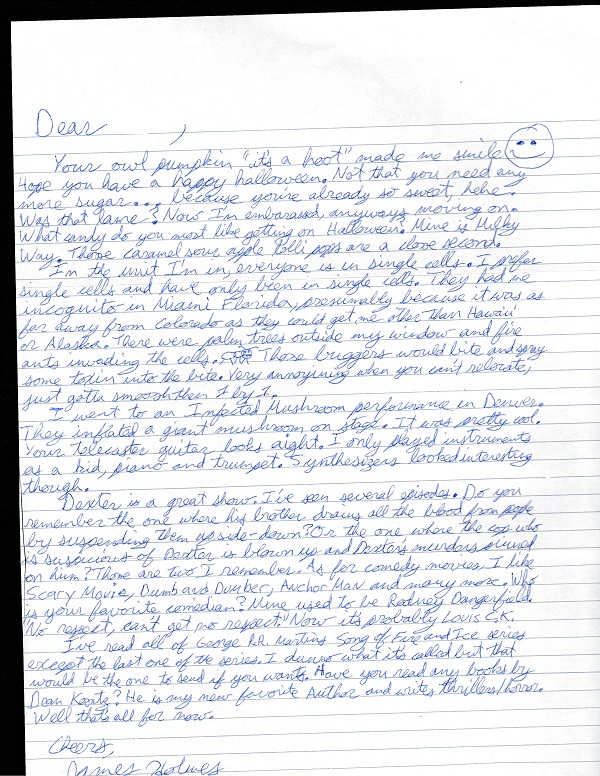 Dear ,
Your owl pumpkin "it's a hoot" made me smile
Hope you have a happy halloween. Not that you need any
more sugar... because you're already so sweet, hehe.
Was that lame? Now I'm embarassed, anyways moving on.
What candy do you most like getting on Halloween. Mine is Milky
Way. Those caramel sour apple lolli pops are a close second.
I'm the unit I'm in, everyone is in single cells. I prefer
single cells and have only been in single cells. They had me
incognito in Miami Florida, presumably because it was as
far away from Colorado as they could get me other than Hawaii
or Alaska. There were palm trees outside my window and fire
ants invading the cells. Those buggers would bite and spray
some toxin into the bite. Very annoying when you can't relocate,
just gotta smoosh them 1 by 1.
I went to an Infected Mushroom performance in Denver.
They inflated a giant mushroom on stage. It was pretty cool.
Your telecaster guitar looks aight. I only played instruments
as a kid, piano and trumpet. Synthesizers looked interesting
though.
Dexter is a great show. I've seen several episodes. Do you
remember the one where his brother drains all the blood from people
by suspending them upside-down? Or the one where the cop who
is suspicious of Dexter is blown up and Dexter's murders pinned
on him? Those are two I remember. As for comedy movies, I like
Scary Movie, Dumb and Dumber, Anchor Man and many more. Who
is your favorite comedian? Mine used to be Rodney Dangerfield.
"No respect, can't get no respect." Now it's probably Louis C.K.
I've read all of George R.R. Martins Song of Fire and Ice series
except the last one of the series. I dunno what it's called but that
would be the one to send if you want. Have you read any books by
Dean Koontz? He is my new favorite Author and writes thrillers/horror.
Well that's all for now.
Cheers,
James Holmes